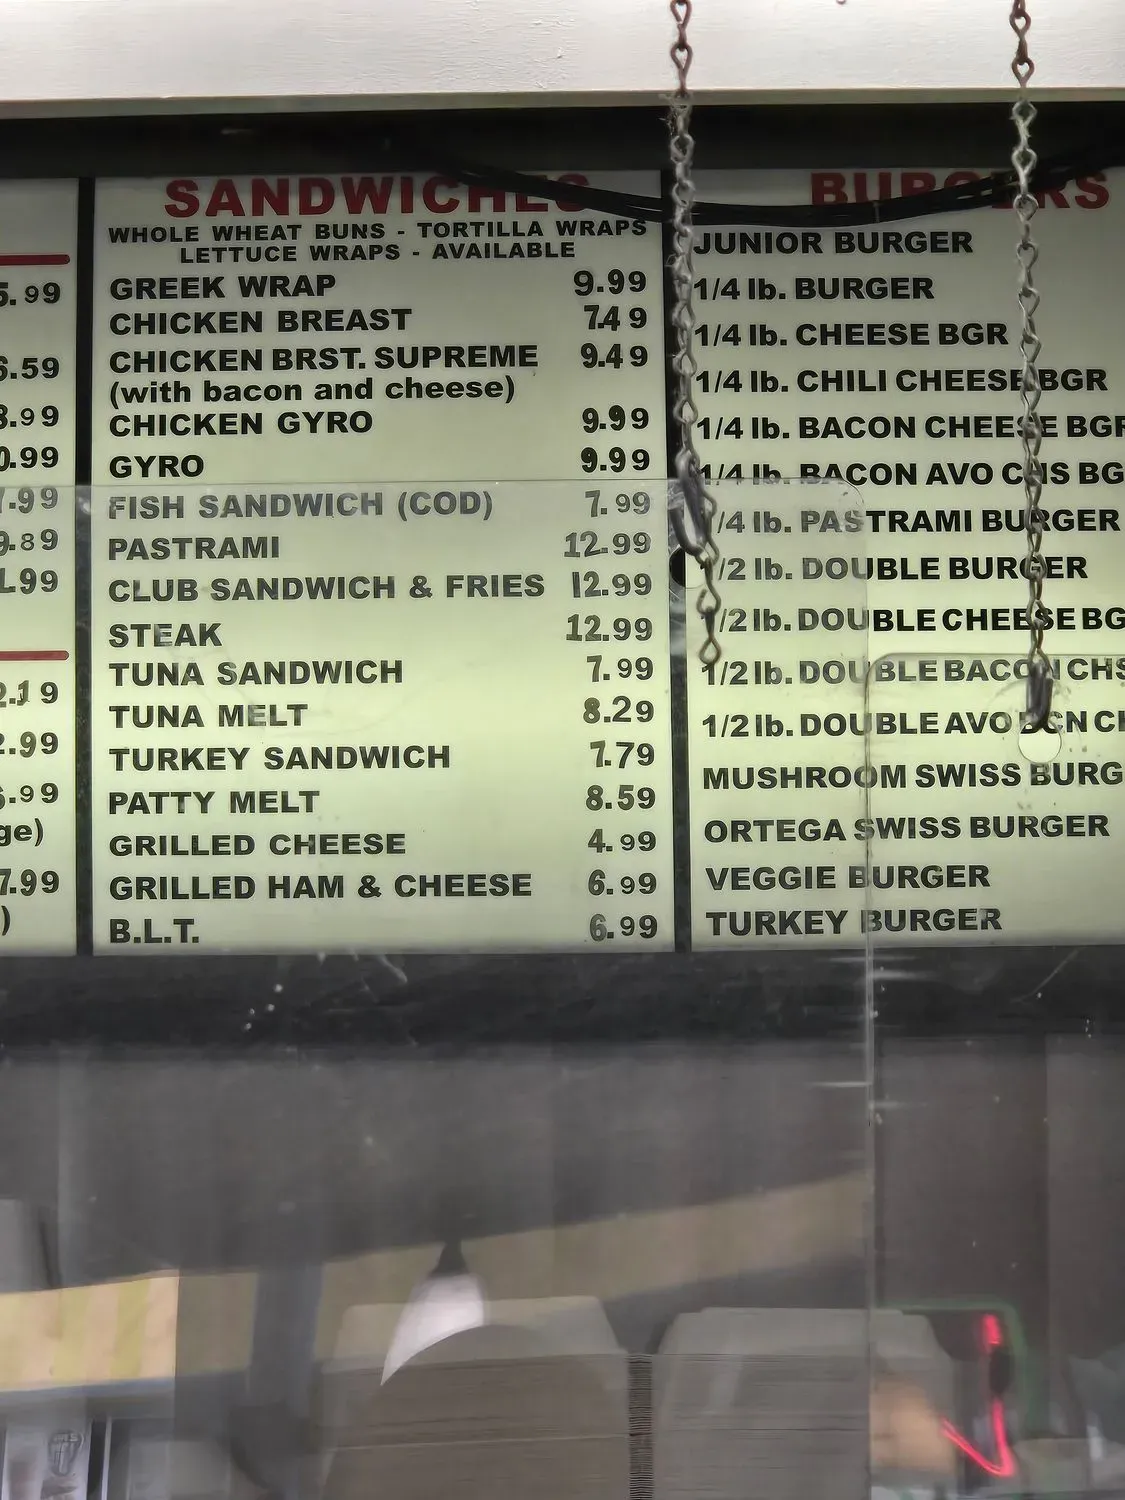 5.99
6.59
8.99
0.99
.99
9.89
1.99
2.19
2.99
6.99
ge)
7.99
)
SANDWICHES
WHOLE WHEAT BUNS - TORTILLA WRAPS
LETTUCE WRAPS - AVAILABLE
GREEK WRAP 9.99
CHICKEN BREAST 7.49
CHICKEN BRST. SUPREME 9.49
(with bacon and cheese)
CHICKEN GYRO 9.99
GYRO 9.99
FISH SANDWICH (COD) 7.99
PASTRAMI 12.99
CLUB SANDWICH & FRIES 12.99
STEAK 12.99
TUNA SANDWICH 7.99
TUNA MELT 8.29
TURKEY SANDWICH 7.79
PATTY MELT 8.59
GRILLED CHEESE 4.99
GRILLED HAM & CHEESE 6.99
B.L.T. 6.99
BURGERS
JUNIOR BURGER
1/4 lb. BURGER
1/4 lb. CHEESE BGR
1/4 lb. CHILI CHEESE BGR
1/4 lb. BACON CHEESE BGR
1/4 lb. BACON AVO CHS BG
1/4 lb. PASTRAMI BURGER
1/2 lb. DOUBLE BURGER
1/2 lb. DOUBLE CHEESE BG
1/2 lb. DOUBLE BACON CHS
1/2 lb. DOUBLE AVO BCN CH
MUSHROOM SWISS BURG
ORTEGA SWISS BURGER
VEGGIE BURGER
TURKEY BURGER